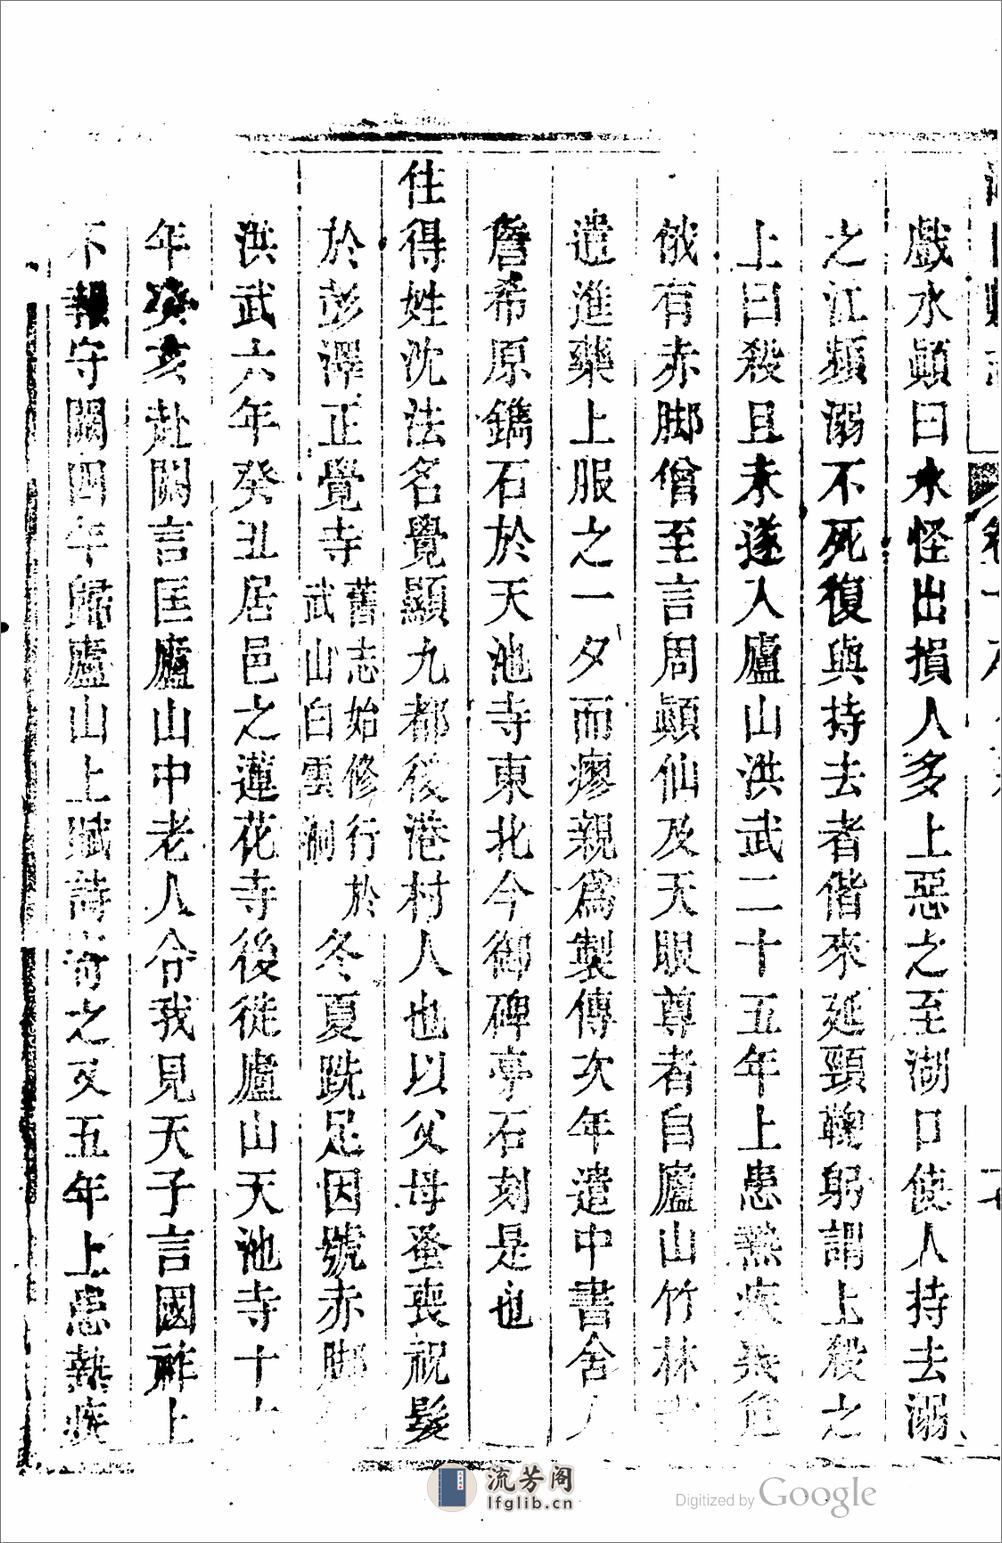 戲水顚曰水怪出損人多上惡之至湖口使人持去溺
之江頻溺不死復與持去者偕來延頸鞠躬謂上殺之
上曰殺且未遂入廬山洪武二十五年上患熱疾幾危
俄有赤脚僧至言周顚仙及天眼尊者自廬山竹林
遣進藥上服之一夕而瘳親爲製傳次年遣中書舍人
詹希原鐫石於天池寺東北今御碑亭石刻是也
住得姓沈法名覺顯九都後港村人也以父母蚤喪祝髮
於彭澤正覺寺
舊志始修行於
武山白雲澗
冬夏跣足因號赤脚
洪武六年癸丑居邑之蓮花寺後徙廬山天池寺十六
年癸亥赴闕言匡廬山中老人令我見天子言國祚上
不報守闕四年歸廬山上賦詩寄之又五年上患熱疾
流芳阁
lfglib.cn
Digitized by Google